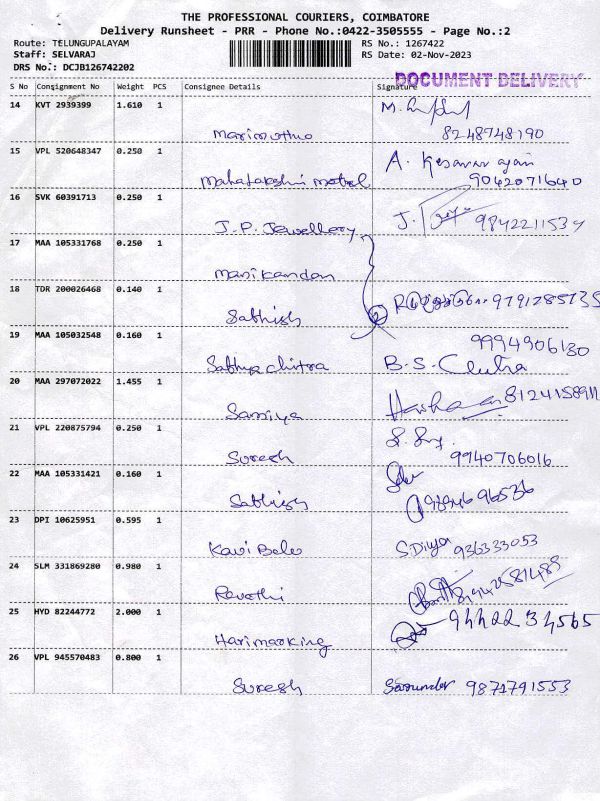 THE PROFESSIONAL COURIERS, COIMBATORE
Delivery Runsheet - PRR - Phone No.:0422-3505555 - Page No.:2
Route: TELUNGUPALAYAM RS No.: 1267422
Staff: SELVARAJ RS Date: 02-Nov-2023
DRS No.: DCJB126742202
DOCUMENT DELIVERY
S No Consignment No Weight PCS Consignee Details Signature
14 KVT 2939399 1.610 1
Marimuthu 8248748190
15 VPL 520648347 0.250 1 A. Kesavan
Mahalakshmi Metal 9042071640
16 SVK 60391713 0.250 1
J.P. Jewellery J. 9842211534
17 MAA 105331768 0.250 1
Manikandan
18 TDR 200026468 0.140 1
Sathish 2 9791285735
19 MAA 105032548 0.160 1 9994906130
Sathya chitra B.S. Chitra
20 MAA 297072022 1.455 1 8124158911
Saniya
21 VPL 220875794 0.250 1
Suresh 9940706016
22 MAA 105331421 0.160 1
Sathish
23 DPI 10625951 0.595 1
Kavi Bala S Divya 936333053
24 SLM 331869280 0.980 1
Revathi
25 HYD 82244772 2.000 1
Harimarking 9442234565
26 VPL 945570483 0.800 1
Suresh Sarunder 9871791553